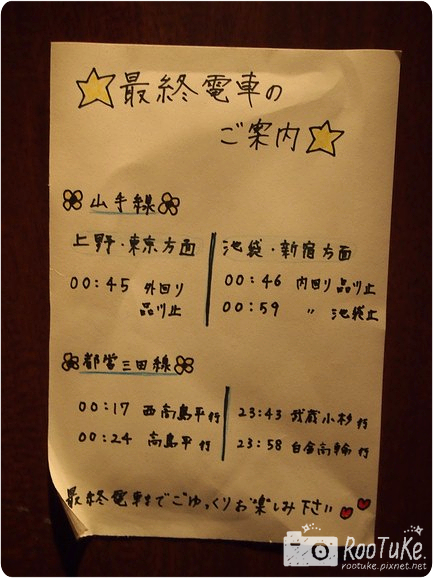 最終電車の
ご案内
山手線
上野・東京方面
00:45 外回り
品川止
池袋・新宿方面
00:46 内回り 品川止
00:59 〃 池袋止
都営三田線
00:17 西高島平行
00:24 高島平行
23:43 武蔵小杉行
23:58 白金高輪行
最終電車までごゆっくりお楽しみ下さい
RooTuKe.
rootuke.pixnet.net